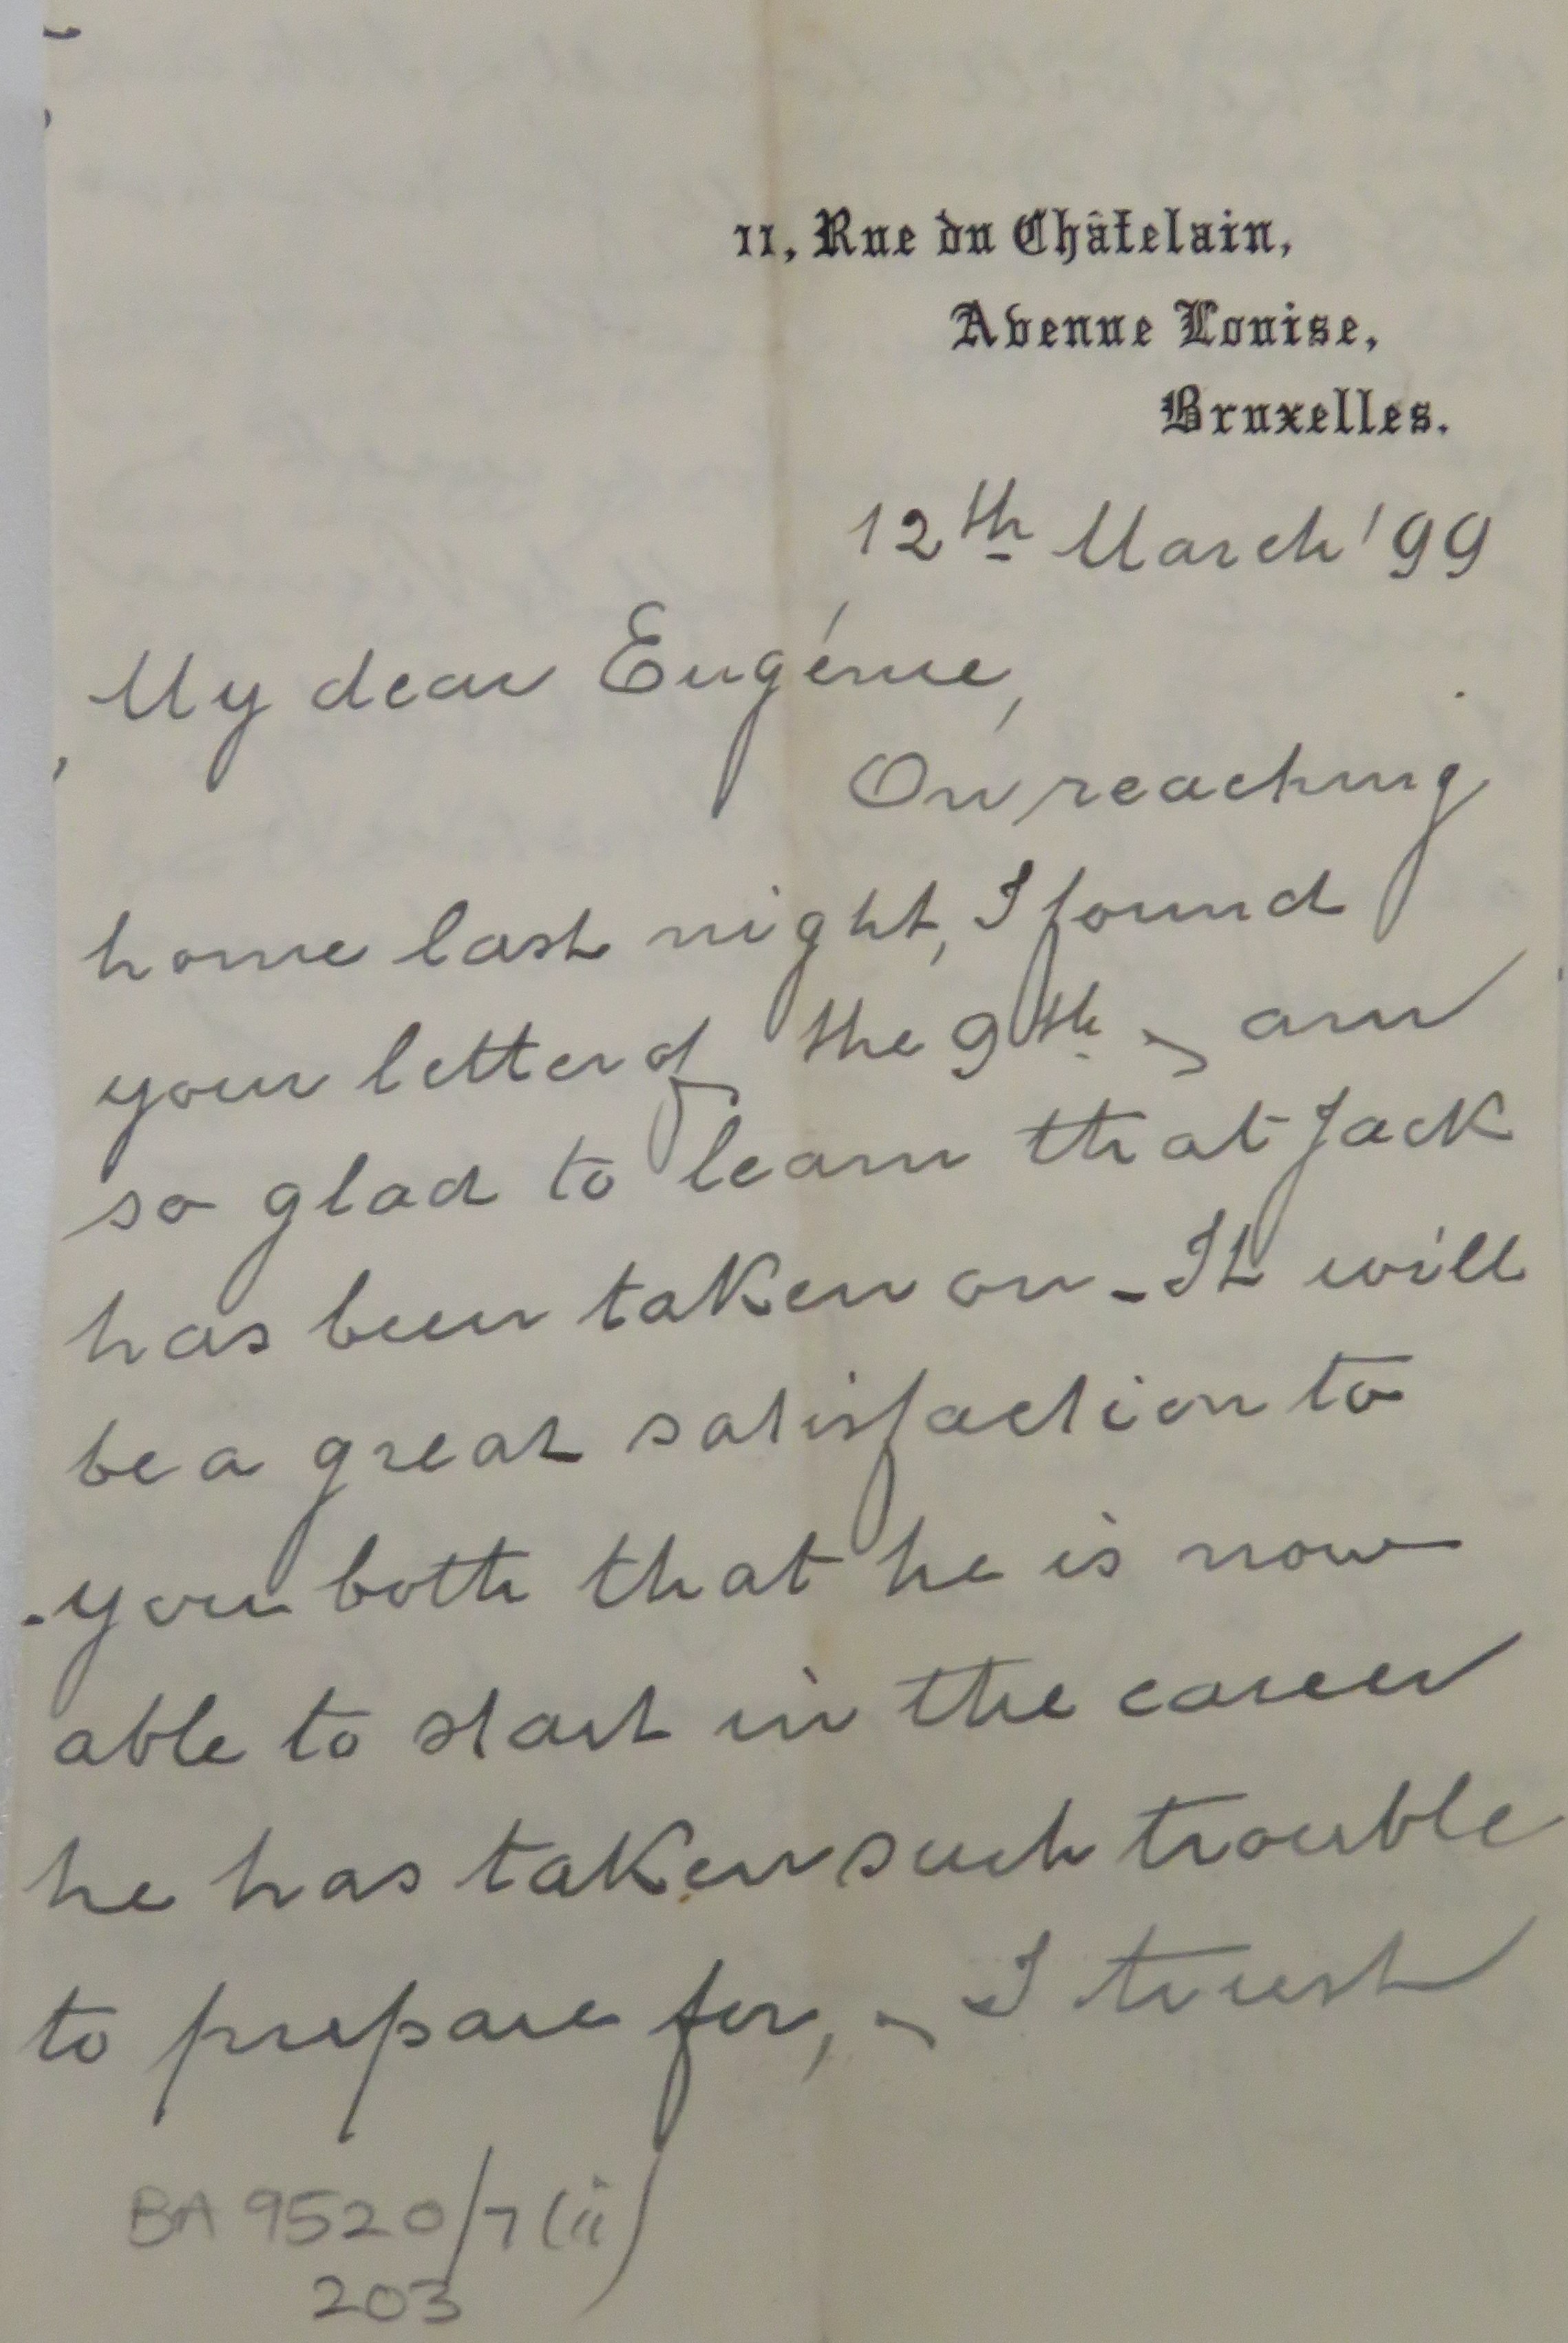 11, Rue du Châtelain,
Avenue Louise,
Bruxelles.
12th March '99
My dear Eugénie,
On reaching
home last night, I found
your letter of the 9th, am
so glad to learn that Jack
has been taken on - It will
be a great satisfaction to
you both that he is now
able to start in the career
he has taken such trouble
to prepare for, I trust
BA 9520/7(ii)
203